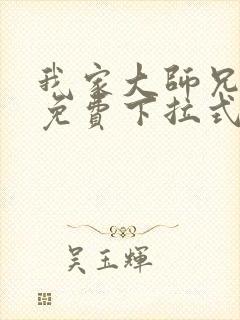 我家大師兄
免費下拉式
吴玉輝